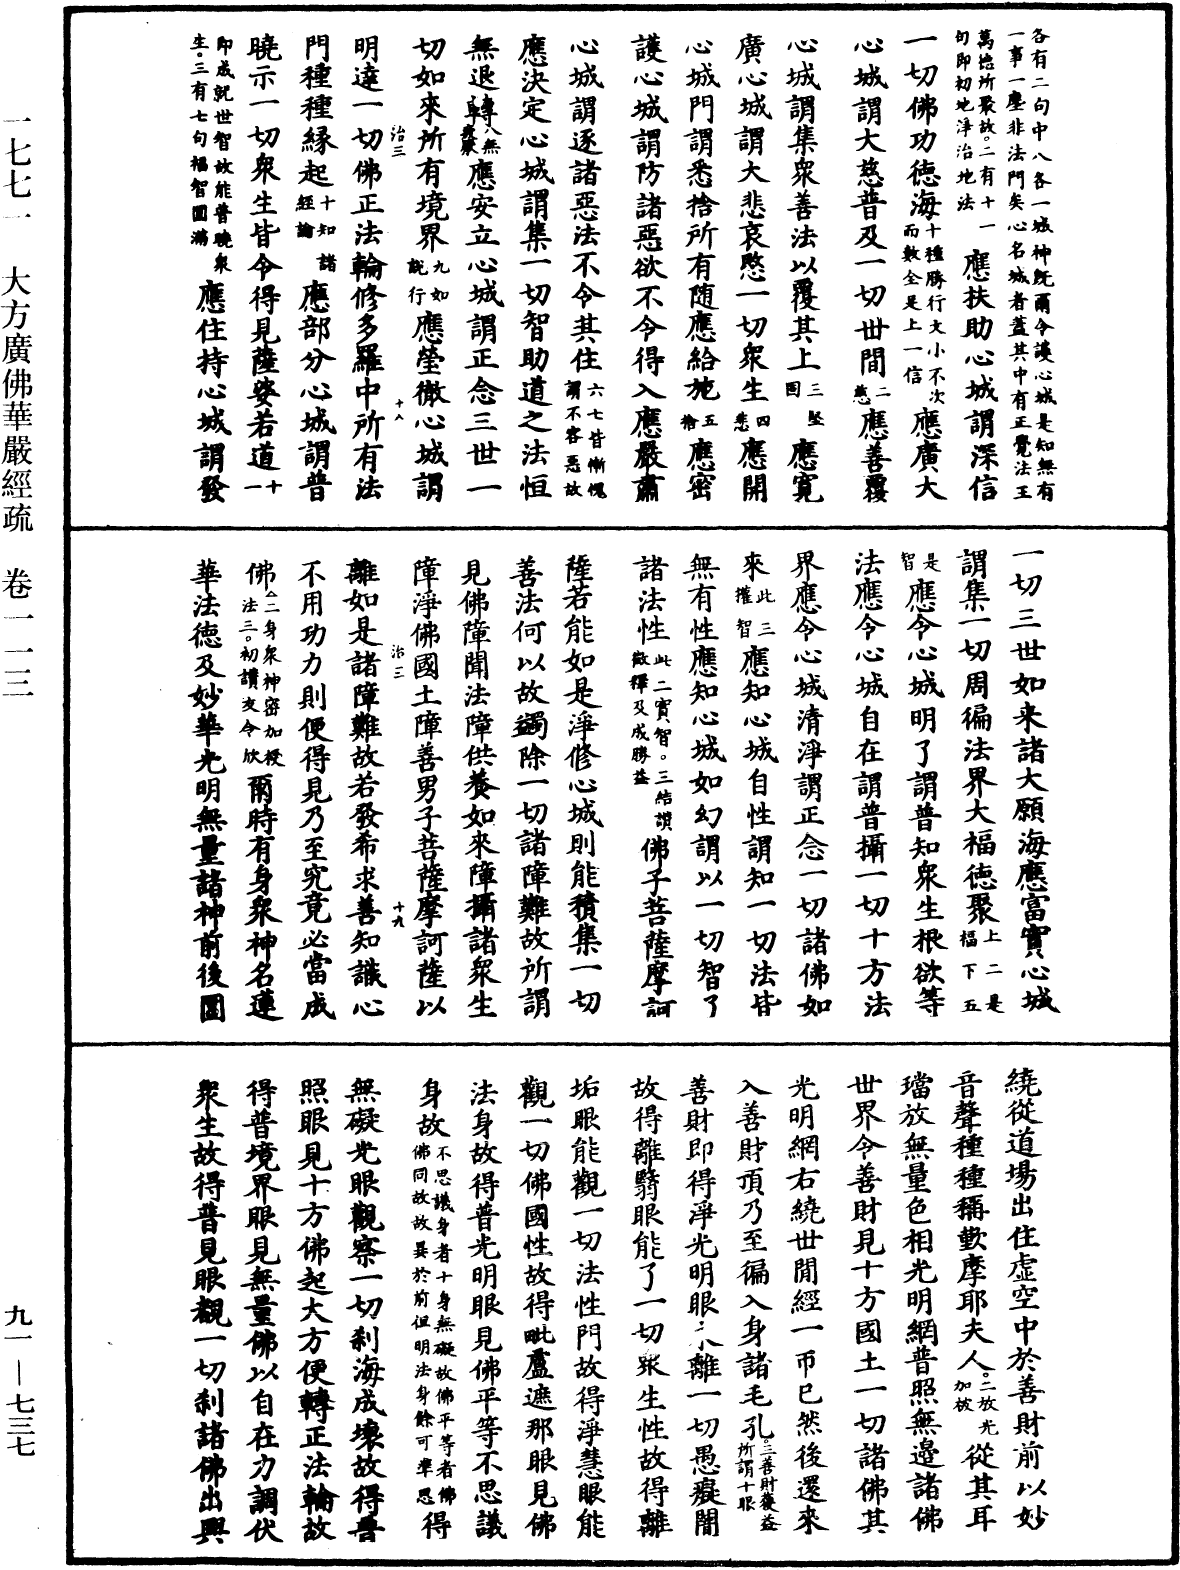 各有二句中八各一城神旣爾令護心城是知無有
一事一塵非法門矣心名城者蓋其中有正覺法王
萬德所聚故。二有十一句即初地淨治地法應扶助心城謂深信
一切佛功德海十種勝行文小不次而數全是上一信應廣大
心城謂大慈普及一切世間二慈應善覆
心城謂集衆善法以覆其上三堅固應寬
廣心城謂大悲哀愍一切衆生四悲應開
心城門謂悉捨所有随應給施五捨應密
護心城謂防諸惡欲不令得入應嚴肅
心城謂逐諸惡法不令其住六七皆慚愧謂不容惡故
應決定心城謂集一切智助道之法恒
無退轉八無疲厭應安立心城謂正念三世一
切如來所有境界九如說行應瑩徹心城謂
治三 十八
明達一切佛正法輪修多羅中所有法
門種種緣起十知諸經論應部分心城謂普
曉示一切衆生皆令得見薩婆若道十一
即成就世智故能普曉衆生。三有七句福智圓滿應住持心城謂發
一切三世如來諸大願海應富實心城
謂集一切周徧法界大福德聚上二是福下五
是智應令心城明了謂普知衆生根欲等
法應令心城自在謂普攝一切十方法
界應令心城清淨謂正念一切諸佛如
來此三權智應知心城自性謂知一切法皆
無有性應知心城如幻謂以一切智了
諸法性此二實智。三結讚徵釋及成勝益佛子菩薩摩訶
薩若能如是淨修心城則能積集一切
善法何以故蠲除一切諸障難故所謂
見佛障聞法障供養如來障攝諸衆生
障淨佛國土障善男子菩薩摩訶薩以
治三 十九
離如是諸障難故若發希求善知識心
不用功力則便得見乃至究竟必當成
佛二身衆神密加授法三。初讚友令欣爾時有身衆神名蓮
華法德及妙華光明無量諸神前後圍
繞從道場出住虛空中於善財前以妙
音聲種種稱歎摩耶夫人。二放光加被從其耳
璫放無量色相光明網普照無邊諸佛
世界令善財見十方國土一切諸佛其
光明網右繞世間經一帀已然後還來
入善財頂乃至徧入身諸毛孔。三善財獲益所謂十眼
善財即得淨光明眼永離一切愚癡闇
故得離翳眼能了一切衆生性故得離
垢眼能觀一切法性門故得淨慧眼能
觀一切佛國性故得毗盧遮那眼見佛
法身故得普光明眼見佛平等不思議
身故不思議身者十身無礙故佛平等者佛佛同故故異於前但明法身餘可準思得
無礙光眼觀察一切刹海成壞故得普
照眼見十方佛起大方便轉正法輪故
得普境界眼見無量佛以自在力調伏
衆生故得普見眼覩一切刹諸佛出興
一七七一 大方廣佛華嚴經疏 卷一一三
九一—七三七